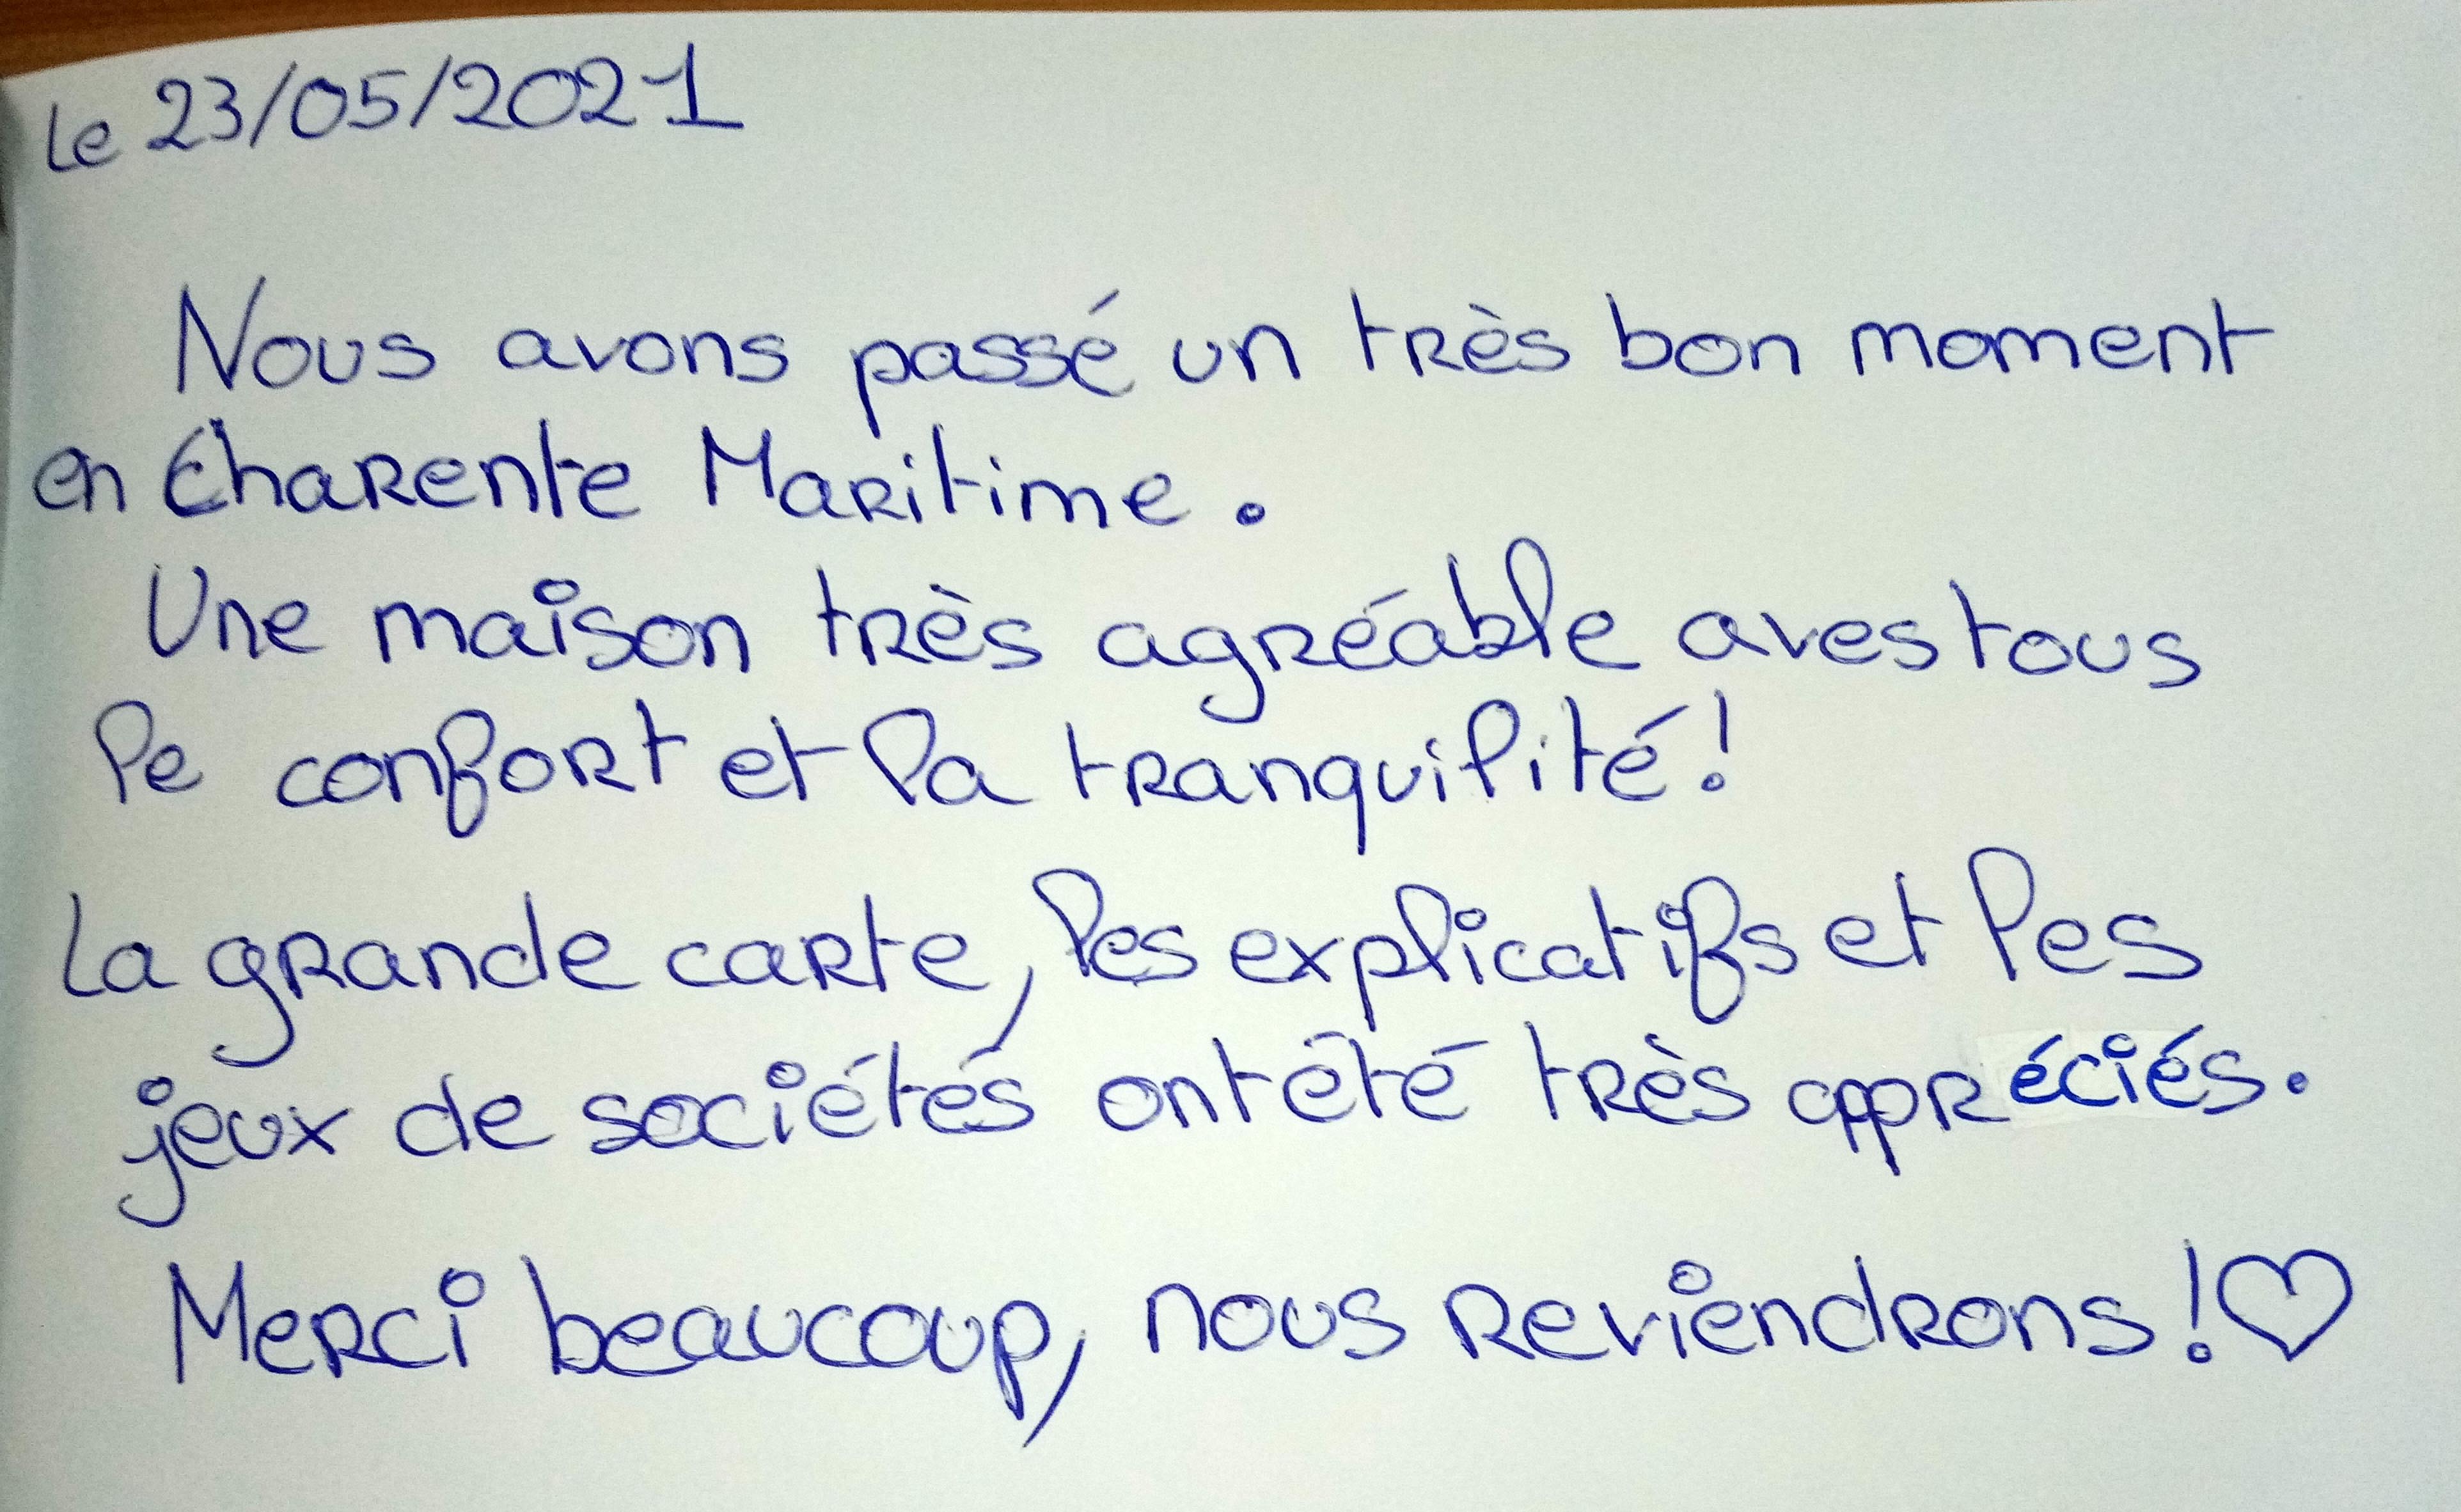 Le 23/05/2021
Nous avons passé un très bon moment
en Charente Maritime.
Une maison très agréable aves tous
le confort et la tranquilité!
La grande carte, les explicatifs et les
jeux de sociétés ont été très appréciés.
Merci beaucoup, nous reviendrons!♡